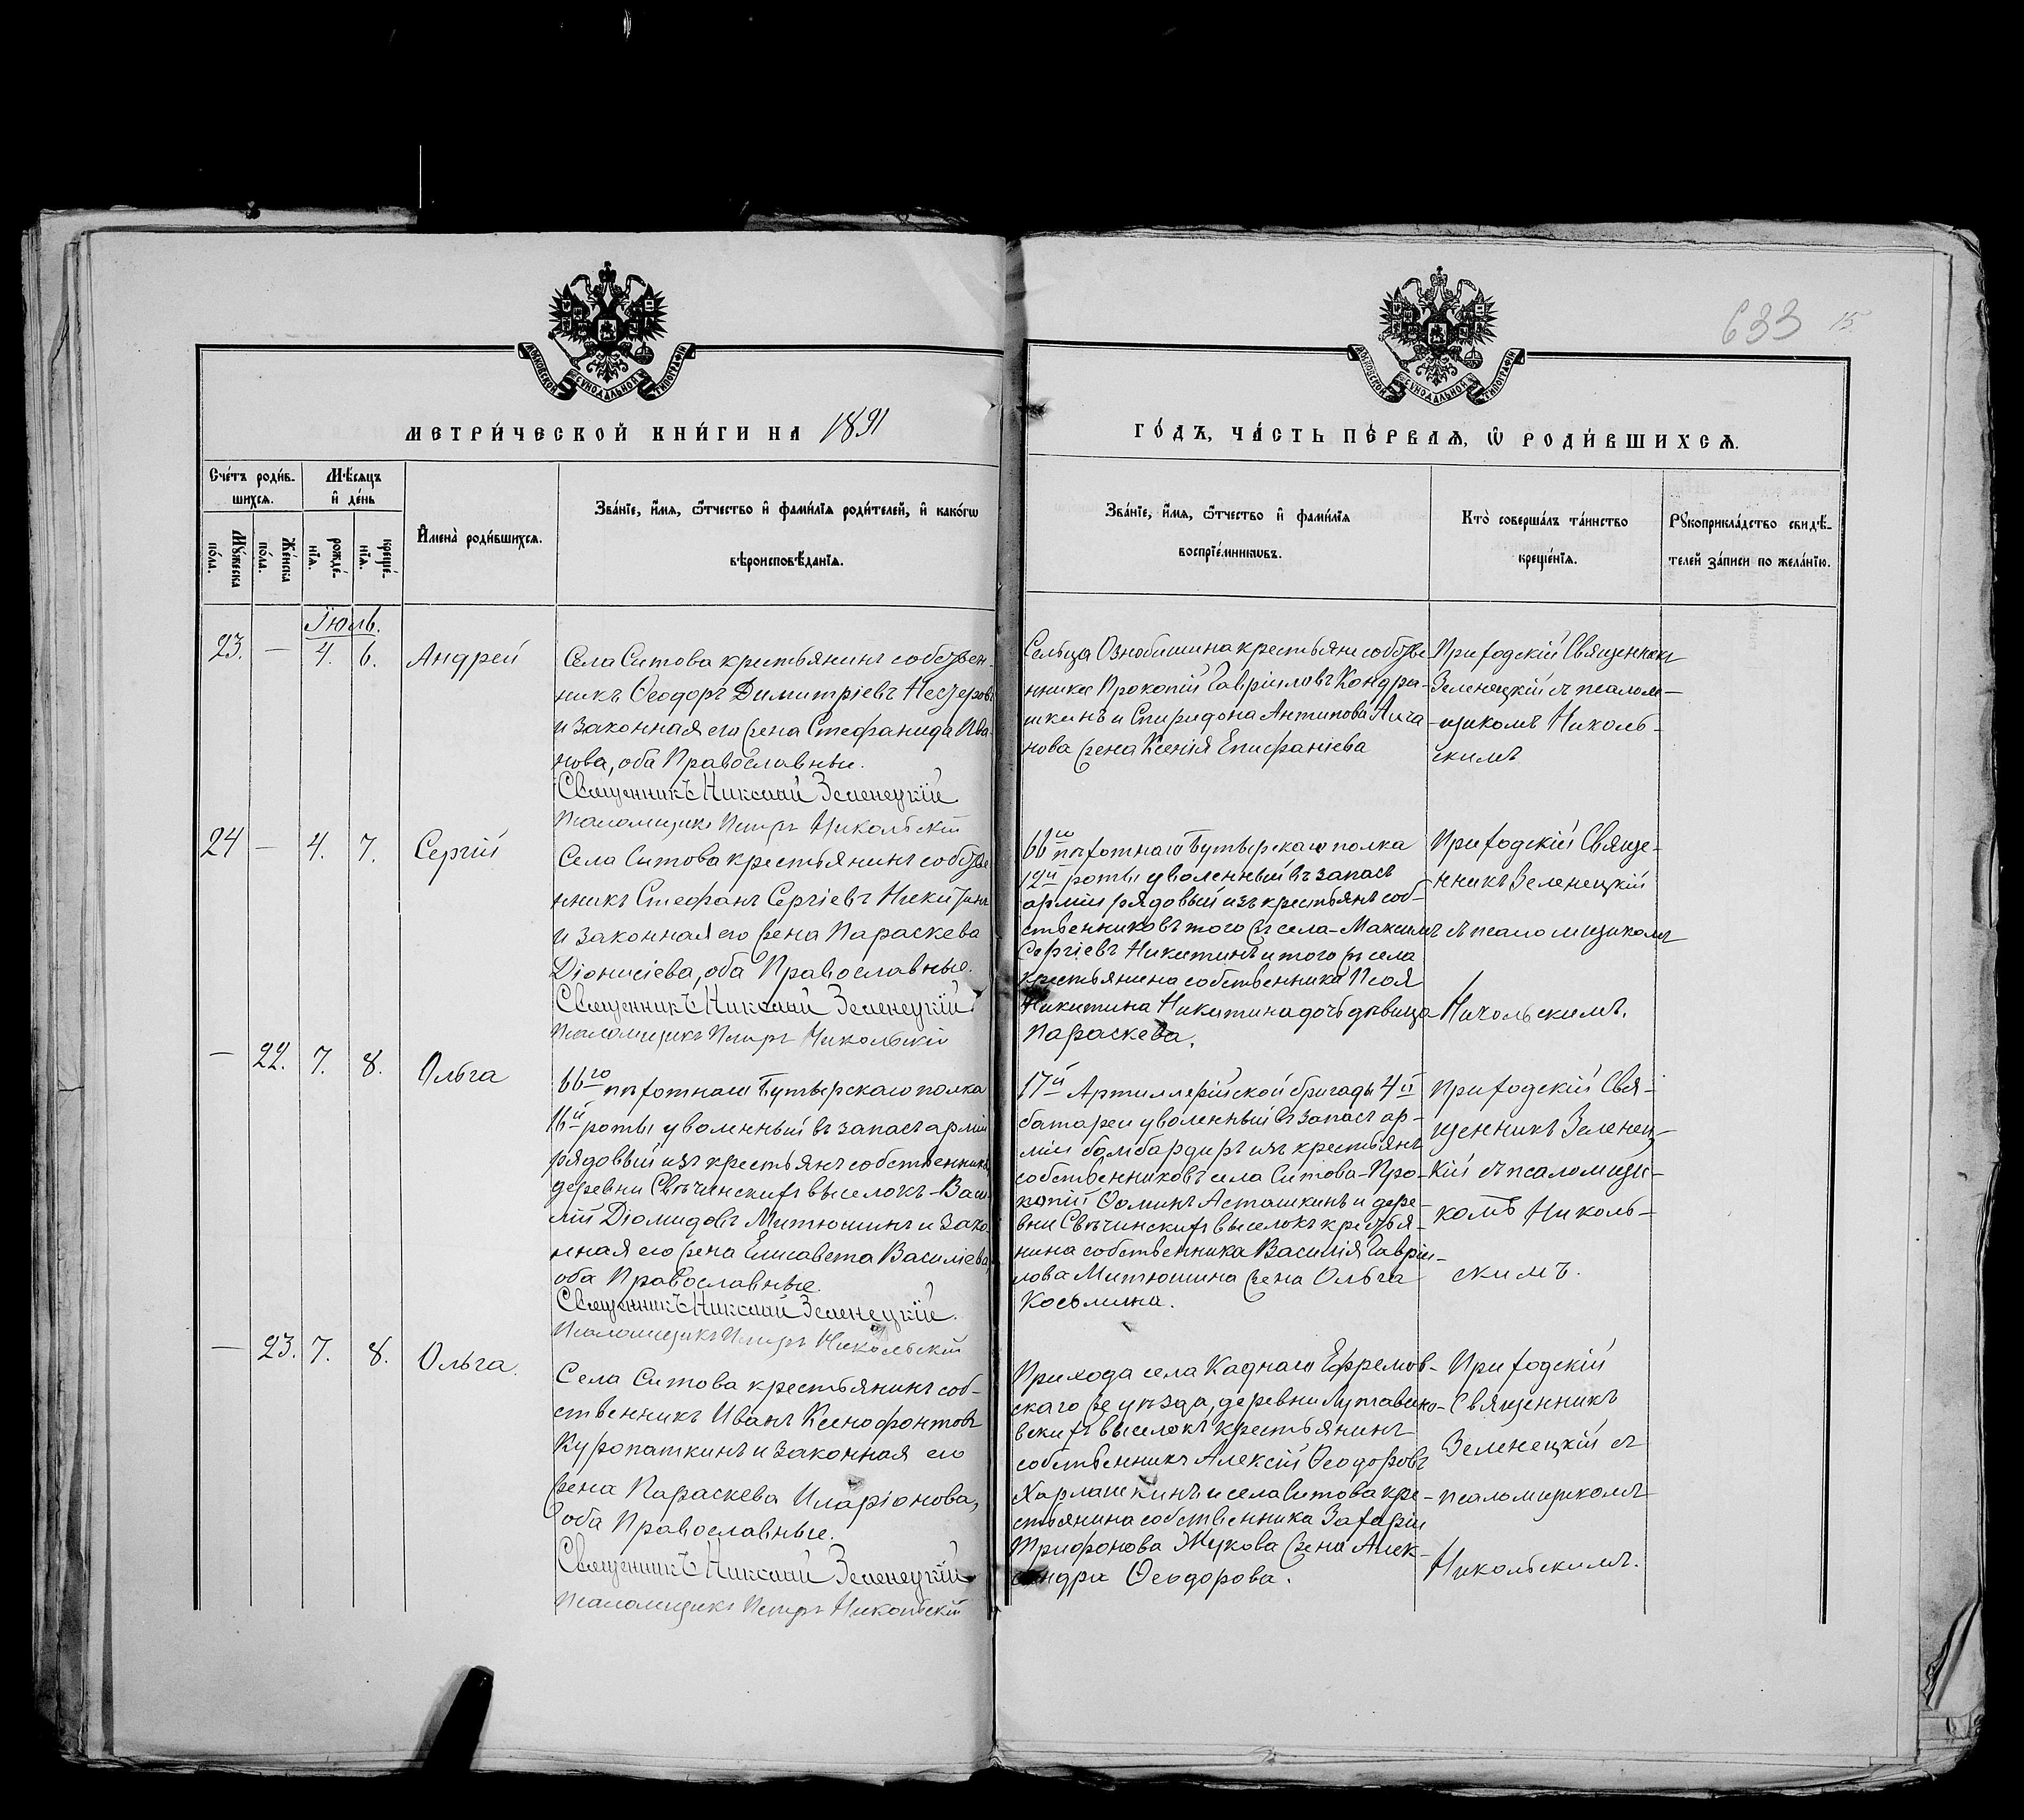 633 15
МОСКОВСКОЙ СѴНОДАЛЬНОЙ ТИПОГРАФІИ
МОСКОВСКОЙ СѴНОДАЛЬНОЙ ТИПОГРАФІИ
МЕТРИ́ЧЕСКОЙ КНИ́ГИ НА 1891
ГО́ДЪ, ЧА́СТЬ ПЕ́РВАѦ, Ѡ РОДИ́ВШИХСѦ.
Сче́тъ роди́в-
шихсѧ.
Мꙋ́жеска по́ла.
Же́нска по́ла.
Мѣ́сѧцъ
и҆ де́нь
рожде́-
нїѧ.
креще́-
нїѧ.
И҆мена̀ роди́вшихсѧ.
Зва́нїе, и҆́мѧ, ѻ҆́тчество и҆ фами́лїѧ роди́телей, и҆ како́гѡ
вѣроисповѣ́данїѧ.
Зва́нїе, и҆́мѧ, ѻ҆́тчество и҆ фами́лїѧ
воспрїе́мникѡвъ.
Кто̀ соверша́лъ та́инство
креще́нїѧ.
Рꙋкоприкла́дство свидѣ́-
телей за́писи по жела́нїю.
Іюль.
23. — 4. 6. Андрей
Села Ситова крестьянинъ собствен-
никъ Ѳеодоръ Димитріевъ Нестеровъ
и законная его жена Стефанида Ива-
нова, оба Православные.
Священникъ Николай Зеленецкій
Псаломщикъ Петръ Никольскій
Сельца Ознобишина крестьяне собстве
нники Прокопій Гавріиловъ Кондра-
шкинъ и Спиридона Антипова
нова жена Ксенія Епифаніева
Приходскій Священникъ
Зеленецкій съ псалом-
щикомъ Николь-
скимъ
24 — 4. 7. Сергій
Села Ситова крестьянинъ собстве
нникъ Стефанъ Сергіевъ Никитинъ
и законная его жена Параскева
Діонисіева, оба Православные.
Священникъ Николай Зеленецкій
Псаломщикъ Петръ Никольскій
66го пѣхотнаго Бутырскаго полка
12й роты уволенный въ запасъ
арміи рядовый изъ крестьянъ соб-
ственниковъ того же села - Максимъ
Сергіевъ Никитинъ и того же села
крестьянина собственника
Никитина Никитина дочь дѣвица
Параскева.
Приходскій Свяще-
нникъ Зеленецкій
съ псаломщикомъ
Никольскимъ.
— 22. 7. 8. Ольга
66го пѣхотнаго Бутырскаго полка
16й роты уволенный въ запасъ арміи
рядовый изъ крестьянъ собственниковъ
деревни Свѣчинскихъ выселокъ - Васи-
лій Діомидовъ Митюшинъ и зако-
нная его жена Елисавета Василіева,
оба Православные.
Священникъ Николай Зеленецкій.
Псаломщикъ Петръ Никольскій
17й Артиллерійской бригады 4й
батареи уволенный въ запасъ ар-
міи бомбардиръ изъ крестьянъ
собственниковъ села Ситова - Про-
копій Ѳоминъ Асташкинъ и дере-
вни Свѣчинскихъ выселокъ крестья-
нина собственника Василія Гавріи-
лова Митюшина жена Ольга
Косьмина.
Приходскій Свя-
щенникъ Зеленец-
кій съ псаломщи-
комъ Николь-
скимъ.
— 23. 7. 8. Ольга.
Села Ситова крестьянинъ соб-
ственникъ Иванъ Ксенофонтовъ
Куропаткинъ и законная его
жена Параскева Иларіонова,
оба Православные.
Священникъ Николай Зеленецкій
Псаломщикъ Петръ Никольскій
Прихода села Каднаго Ефремов-
скаго же уѣзда, деревни
вскихъ выселокъ крестьянинъ
собственникъ Алексій Ѳеодоровъ
Харлашкинъ и села Ситова кре-
стьянина собственника Захаріи
Трифонова Жукова жена Алек-
сандра Ѳеодорова.
Приходскій
Священникъ
Зеленецкій съ
псаломщикомъ
Никольскимъ.